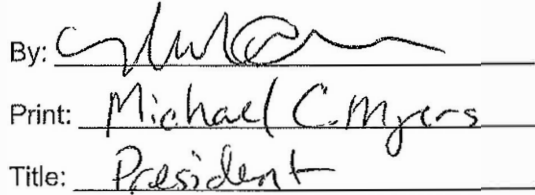 By:
Print: Michael C. Myers
Title: President